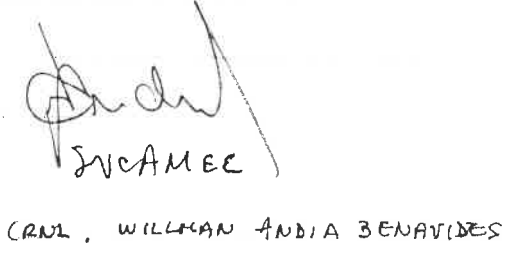 SUCAMEC
CRNL. WILLMAN ANDIA BENAVIDES